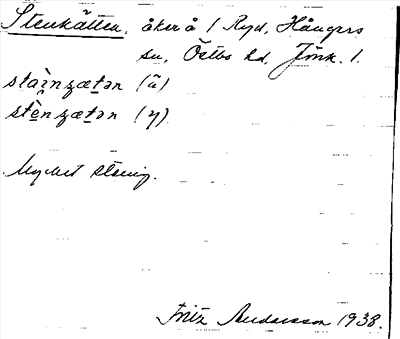 Stenkätten, åker å 1 Ryd, Hångers
sn, Östbo hd, Jönk. l.
sta͕i̯nʒætən (ä)
stènʒætən (y)
Mycket stenig.
Fritz Andersson 1938.